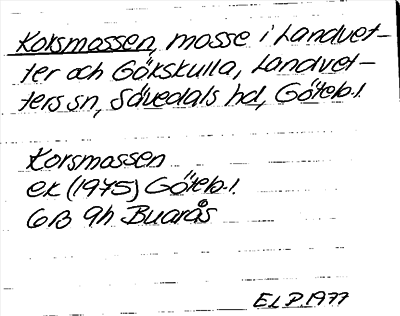 Korsmossen, mosse i Landvet-
ter och Gökskulla, Landvet-
ters sn, Sävedals hd, Göteb.l.
Korsmossen
ek (1975) Göteb.l.
6B 9h Buarås
ELP.1977